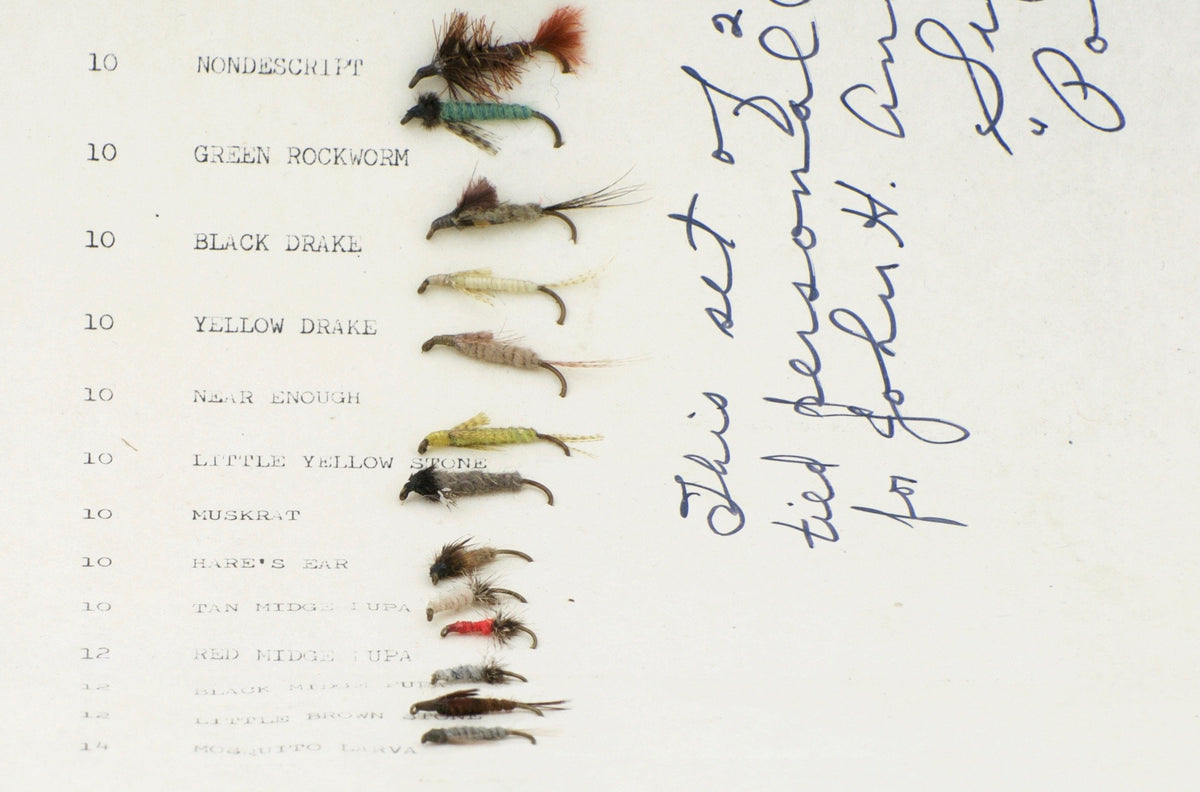 10 NONDESCRIPT
10 GREEN ROCKWORM
10 BLACK DRAKE
10 YELLOW DRAKE
10 NEAR ENOUGH
10 LITTLE YELLOW STONE
10 MUSKRAT
10 HARE'S EAR
10 TAN MIDGE PUPA
12 RED MIDGE PUPA
12 BLACK MIDGE PUPA
12 LITTLE BROWN STONE
14 MOSQUITO LARVA
This set of 2
tied personal
for John H.
"Po